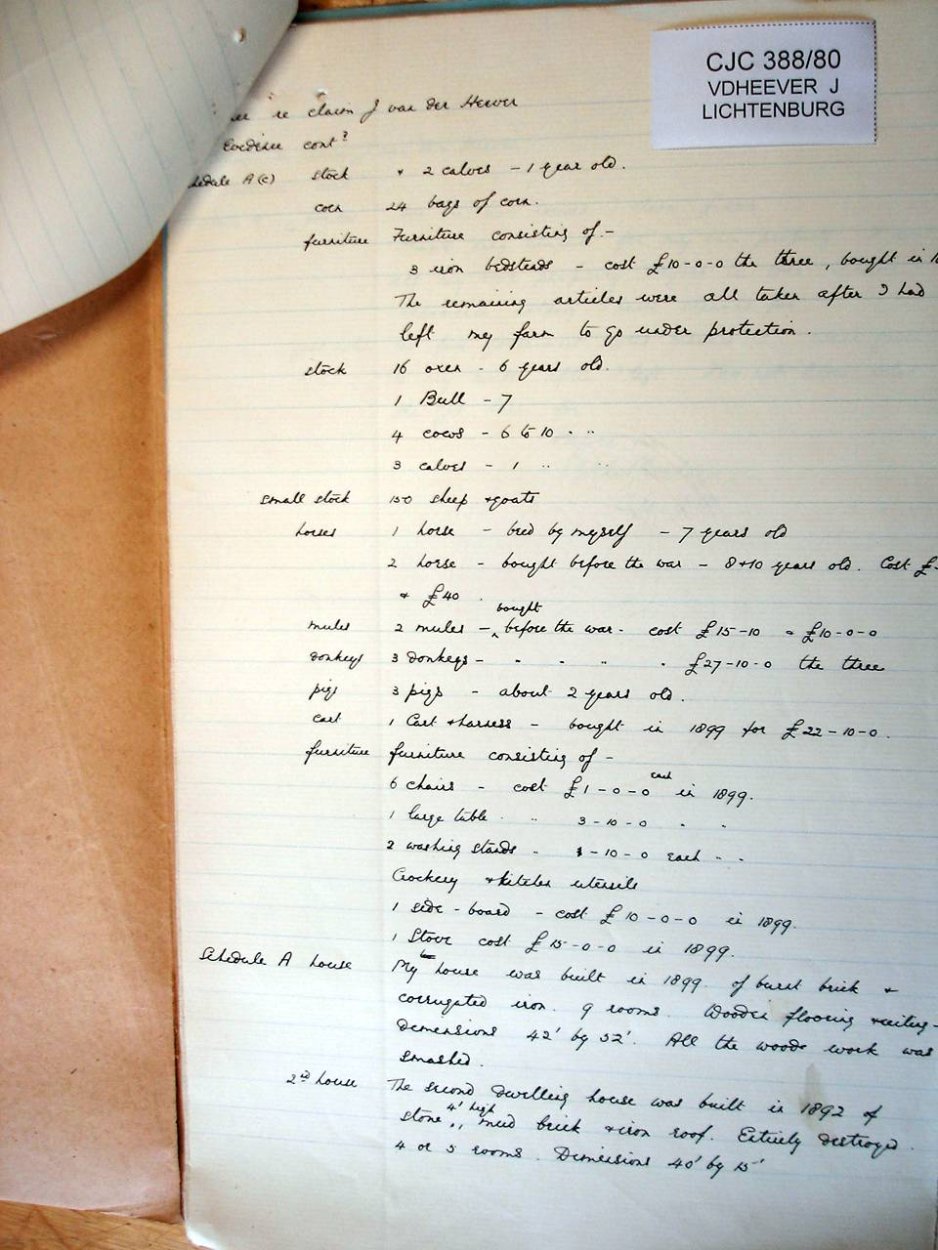 CJC 388/80
VDHEEVER J
LICHTENBURG
re claim J van der Heever
Evidence cont?
A (c) stock + 2 calves - 1 year old.
corn 24 bags of corn.
furniture Furniture consisting of:-
3 iron bedsteads - cost £10-0-0 the three, bought in
The remaining articles were all taken after I had
left my farm to go under protection.
stock 16 oxen - 6 years old.
1 Bull - 7
4 cows - 6 to 10 " "
3 calves - 1 " "
small stock 150 sheep & goats
horses 1 horse - bred by myself - 7 years old
2 horse - bought before the war - 8 & 10 years old. Cost £
& £40.
mules 2 mules - bought before the war - cost £15-10 & £10-0-0
donkeys 3 donkeys - " " " " £27-10-0 the three
pigs 3 pigs - about 2 years old.
cart 1 Cart & harness - bought in 1899 for £22-10-0.
furniture furniture consisting of -
6 chairs - cost £1-0-0 each in 1899.
1 large table " " 3-10-0 " "
2 washing stands - -10-0 each " "
Crockery & kitchen utensils
1 side-board - cost £10-0-0 in 1899.
1 Stove cost £15-0-0 in 1899.
Schedule A house My house was built in 1899 of burnt brick &
corrugated iron. 9 rooms. Wooden flooring & ceiling-
dimensions 42' by 52'. All the woode work was
smashed.
2nd house The second dwelling house was built in 1892 of
stone 4' high, mud brick & iron roof. Entirely destroyed.
4 or 5 rooms. Dimensions 40' by 15'